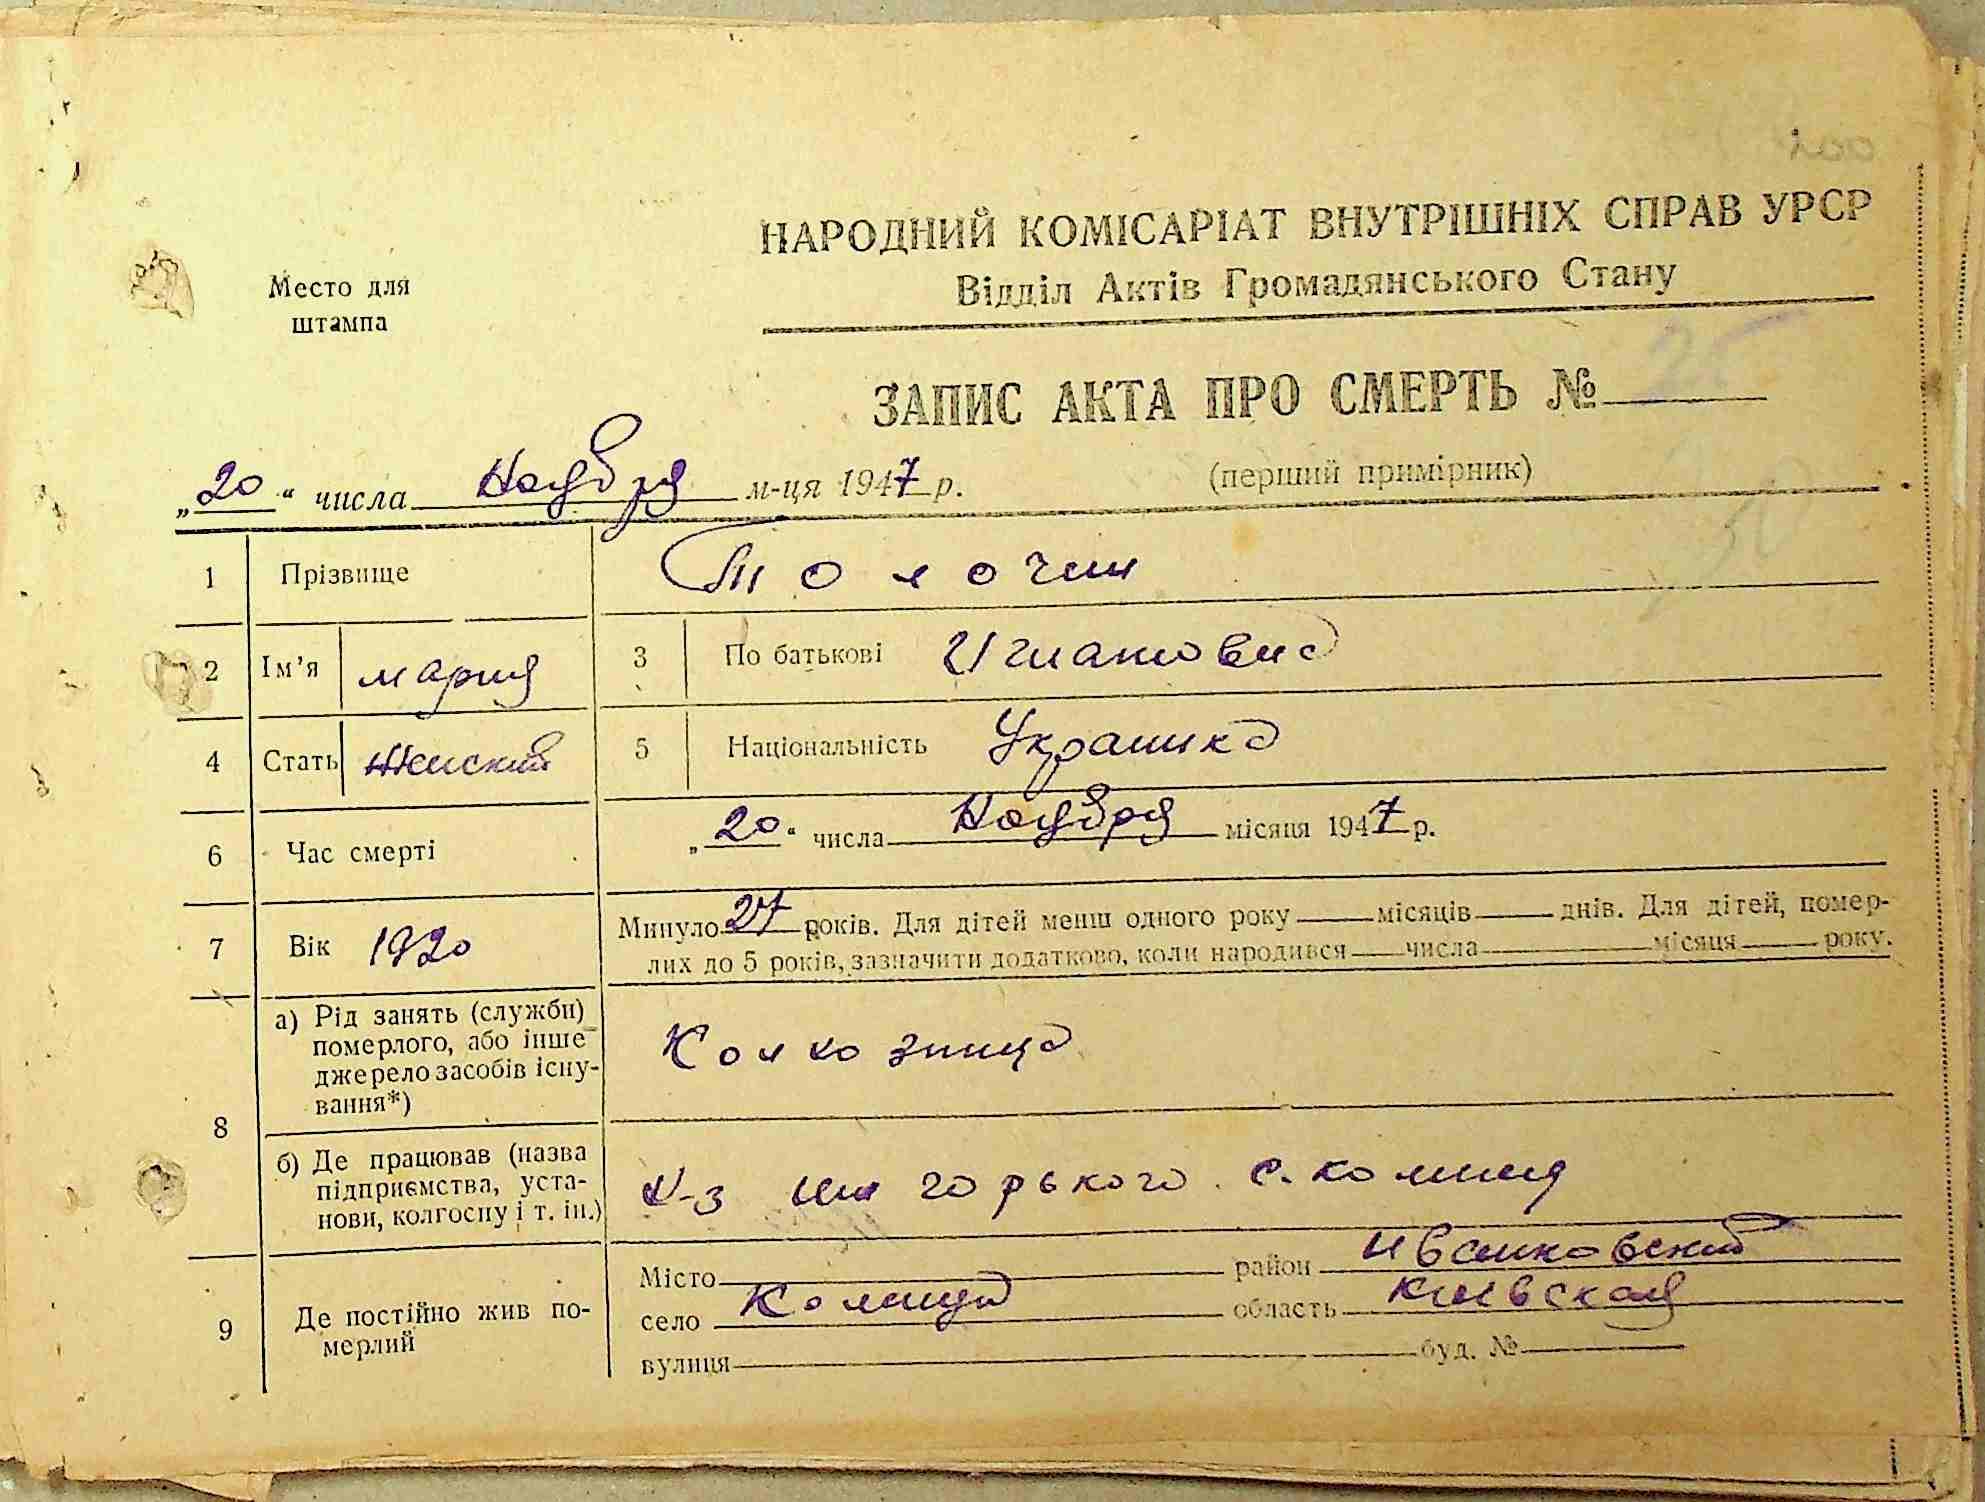 НАРОДНИЙ КОМІСАРІАТ ВНУТРІШНІХ СПРАВ УРСР
Відділ Актів Громадянського Стану
Место для
штампа
ЗАПИС АКТА ПРО СМЕРТЬ № 25
(перший примірник)
„20“ числа Ноября м-ця 1947 р.
1 Прізвище Толочин
2 Ім’я мария 3 По батькові Игнатовна
4 Стать Женский 5 Національність Украинка
6 Час смерті „20“ числа Ноября місяця 1947 р.
7 Вік 1920 Минуло 27 років. Для дітей менш одного року місяців днів. Для дітей, помер-
лих до 5 років, зазначити додатково, коли народився числа місяця року.
8 а) Рід занять (служби)
померлого, або інше
джерело засобів існу-
вання*)
Колхозница
б) Де працював (назва
підприємства, уста-
нови, колгоспу і т. ін.)
к-з им горького с.
9 Де постійно жив по-
мерлий
Місто район Иванковский
село область Киевская
вулиця буд. №